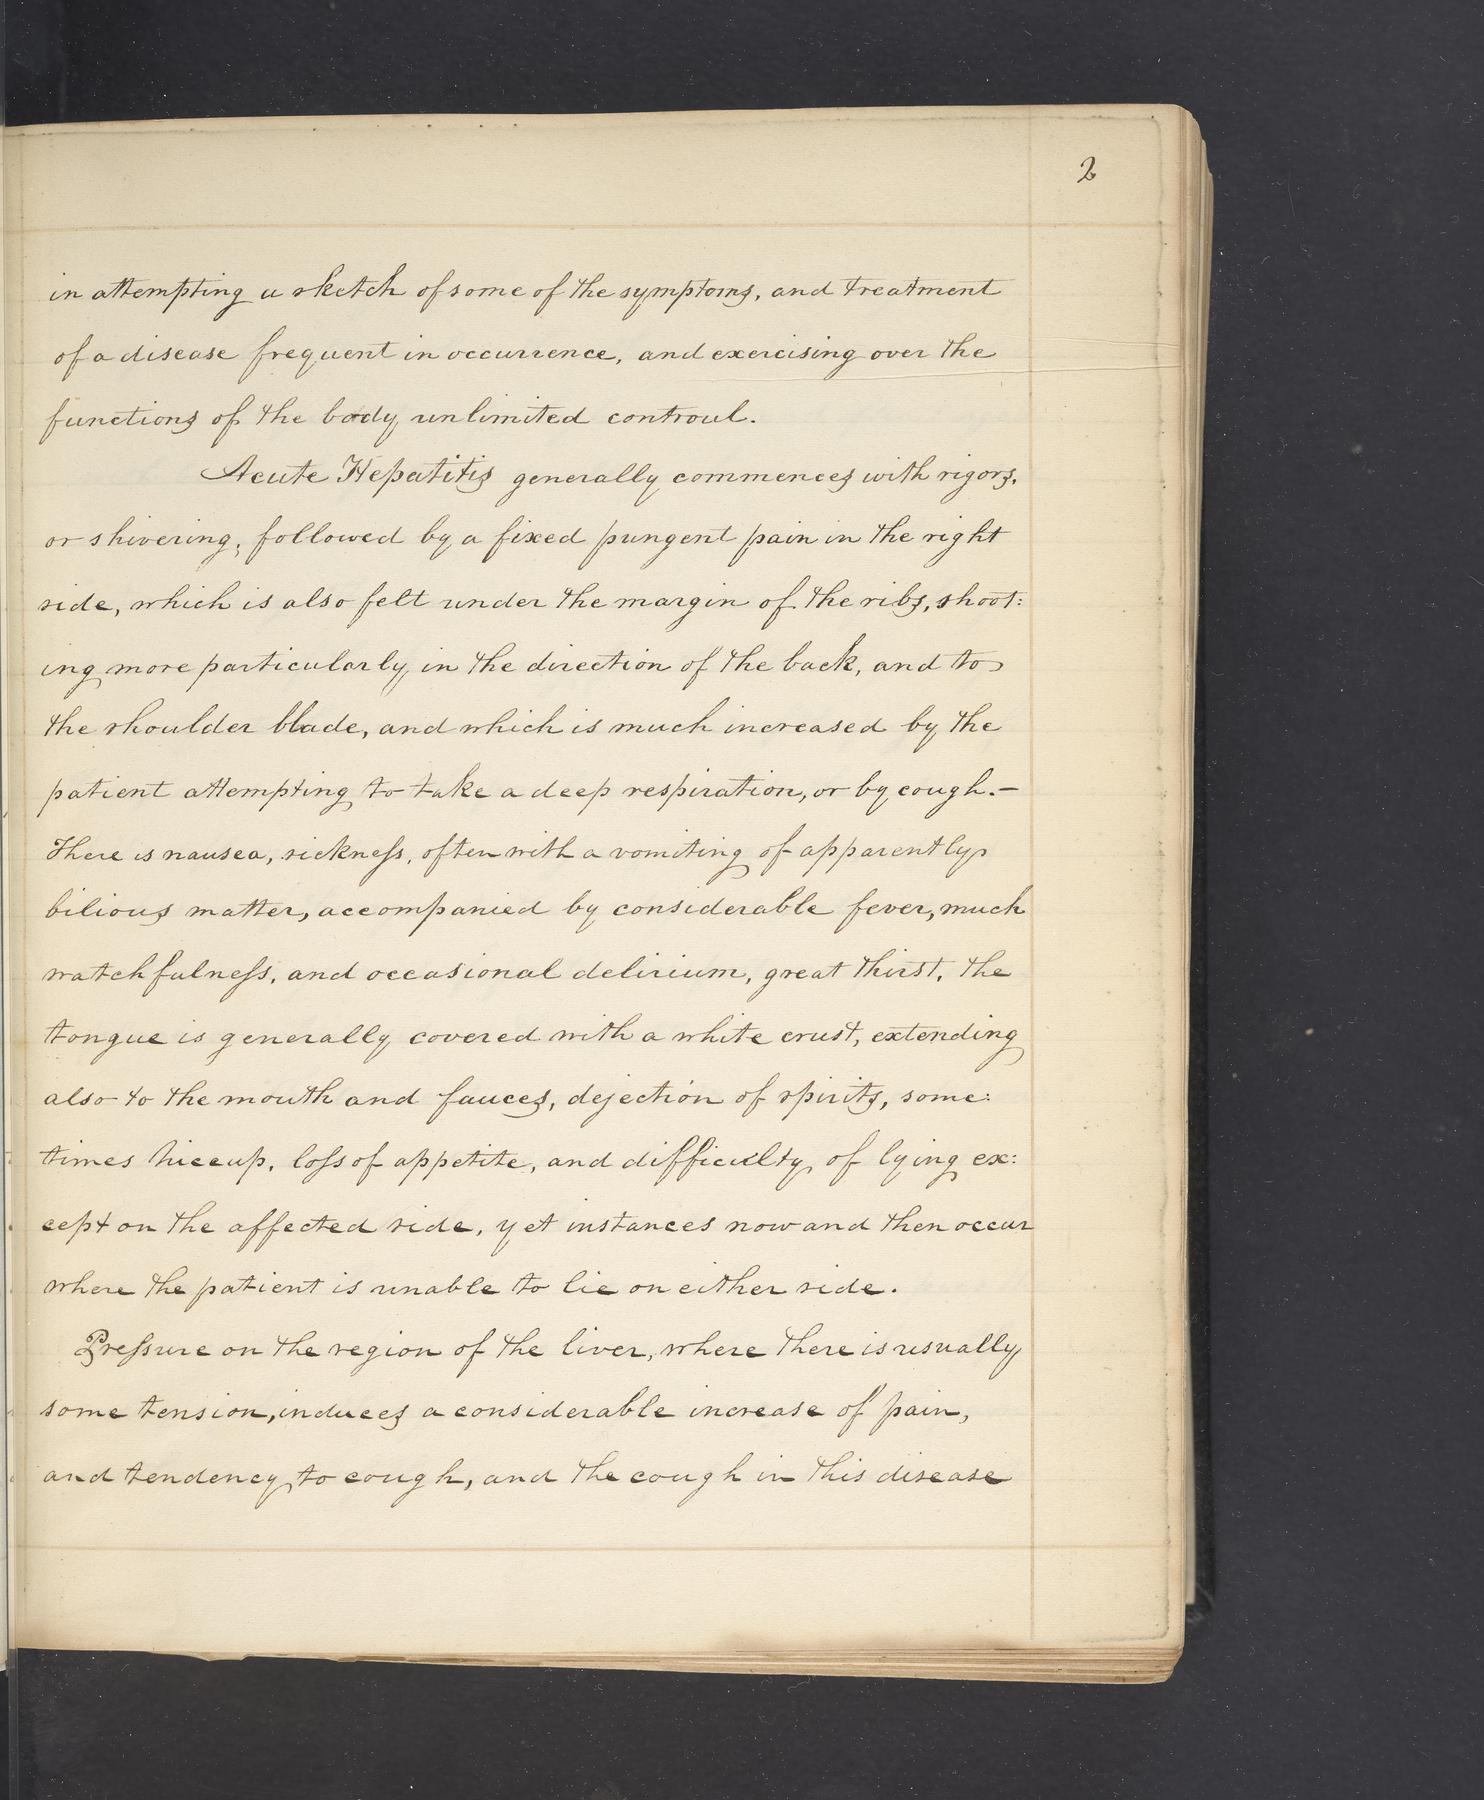 2
in attempting a sketch of some of the symptoms, and treatment
of a disease frequent in occurrence, and exercising over the
functions of the body unlimited controul.
Acute Hepatitis generally commences with rigors,
or shivering, followed by a fixed pungent pain in the right
side, which is also felt under the margin of the ribs, shoot:
ing more particularly in the direction of the back, and to
the shoulder blade, and which is much increased by the
patient attempting to take a deep respiration, or by cough.—
There is nausea, sickneſs, often with a vomiting of apparently
bilious matter, accompanied by considerable fever, much
watchfulneſs, and occasional delirium, great thirst, the
tongue is generally covered with a white crust, extending
also to the mouth and fauces, dejection of spirits, some:
times hiccup, loſs of appetite, and difficulty of lying ex:
cept on the affected side, yet instances now and then occur
where the patient is unable to lie on either side.
Preſsure on the region of the liver, where there is usually
some tension, induces a considerable increase of pain,
and tendency to cough, and the cough in this disease